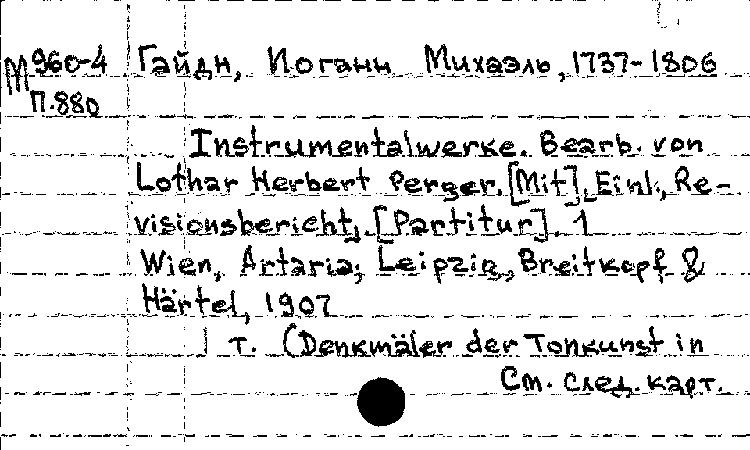 М 960-4 Гайдн, Иоганн Михаэль, 1737-1806
П.880
Instrumentalwerke. Bearb. von
Lothar Herbert Perger. [Mit] Einl., Re-
visionsbericht. [Partitur]. 1
Wien, Artaria; Leipzig, Breitkopf &
Härtel, 1907
т. (Denkmäler der Tonkunst in
См. след. карт.